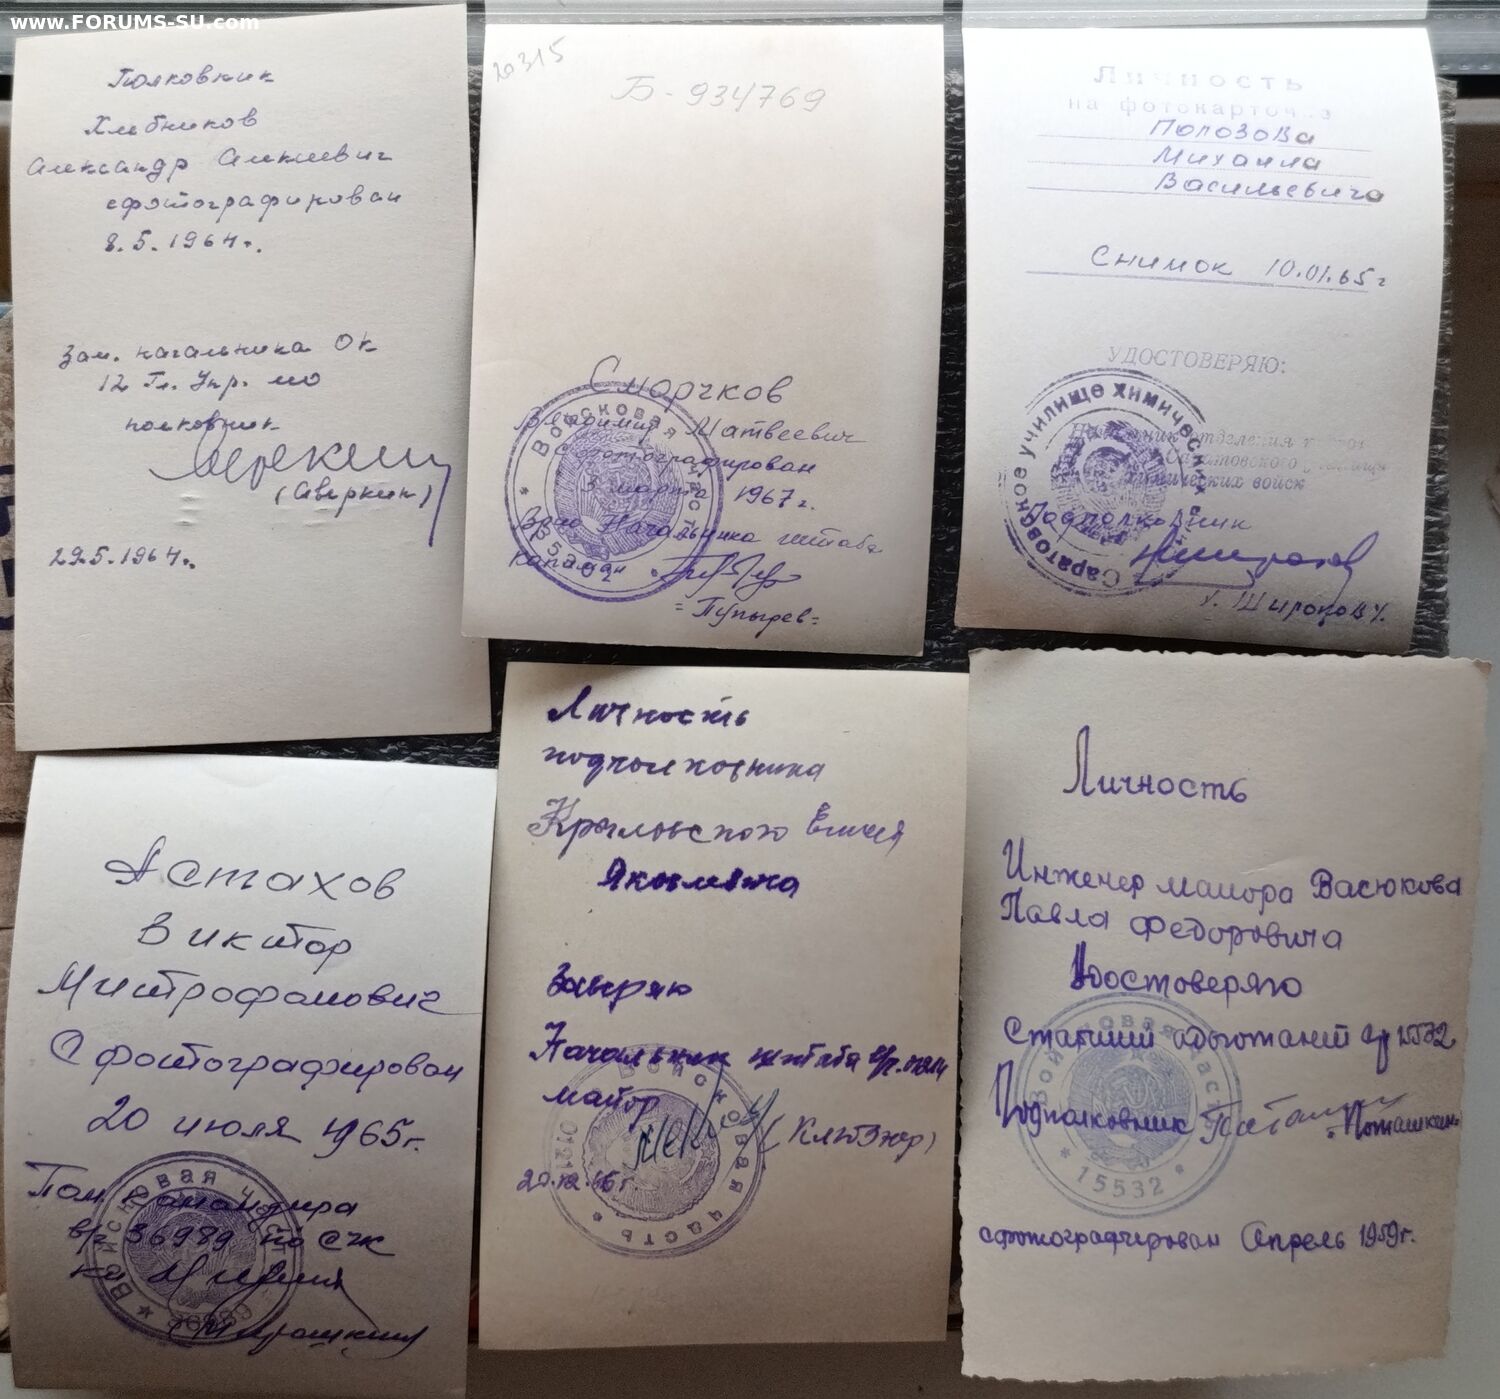 www.FORUMS-SU.com
Полковник
Хлебников
Александр Алексеевич
сфотографирован
8.5.1964г.
Зам. начальника ОК
12 Гл. Упр. МО
полковник
(Аверкин)
29.5.1964г.
20315
Б-934769
Сморчков
Владимир Матвеевич
Сфотографирован
3 марта 1967г.
Врио Начальника штаба
капитан
=Пупырев=
Войсковая часть
Личность
на фотокарточке
Полозова
Михаила
Васильевича
Снимок 10.01.65г
УДОСТОВЕРЯЮ:
Начальник отделения кадров
Саратовского училища
химических войск
Подполковник
/. Широков /.
Саратовское училище химических
Астахов
Виктор
Митрофанович
Сфотографирован
20 июля 1965г.
Пом. командира
в/ч 36989 по СЧК
Мирошкин
Войсковая часть
36989
Личность
подполковника
Крыловского Елисея
Яковлевича
Заверяю
Начальник штаба в/ч
майор
(Клюзнер)
20.12.66г.
Войсковая часть
Личность
Инженер майора Васюкова
Павла Федоровича
Удостоверяю
Старший адъютант в/ч 15532
Подполковник Поташкин
Войсковая часть
* 15532 *
сфотографирован Апрель 1959г.